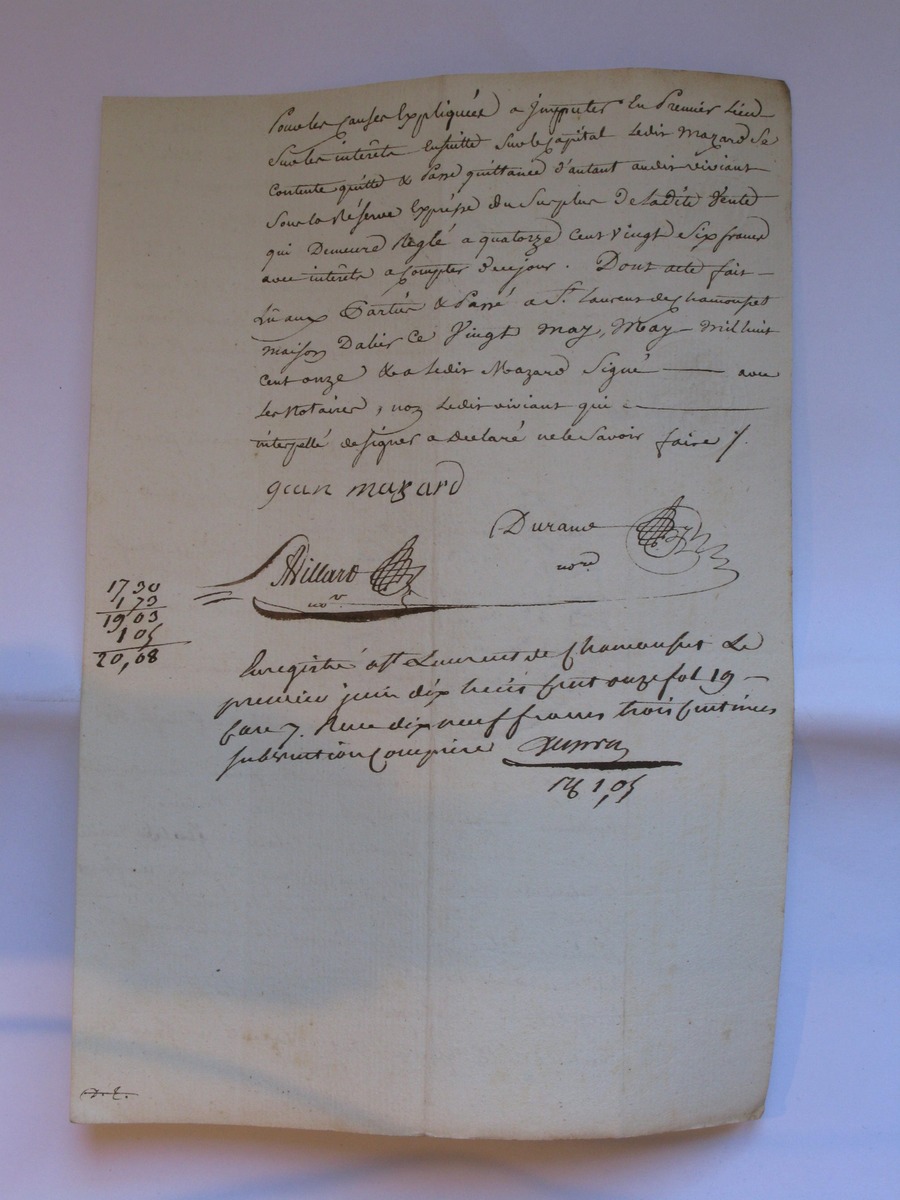 Pour les Causes Expliquées a jmputer En Premier Lieu
Sur les intérêts Ensuitte Sur le Capital Ledit Mazard Se
Contente quitte & Passe quittance d'autant audit viviant
Sous la Réserve Expresse du Surplus De Ladite Vente
qui Demeure Reglé a quatorze Cent Vingt Six francs
avec intérêts a Compter de ce jour. Dont acte fait
Lû aux Parties & Passé a St. Laurent de Chamousset
maison Dalier Ce Vingt may, May mil huit
Cent onze & a Ledit Mazard Signé avec
Les Notaires, non Ledit viviant qui
interpellé de signer a Déclaré ne le Savoir faire /.
jean mazard
Durand
nore
Villard
nore
17,30
1 73
19 03
1 05
20,08
Enregistré a St Laurent de Chamousset Le
premier juin dix huit Cent onze fol 19
Case 7. Recu dix neuf francs trois Centimes
subvention Comprise
1,05